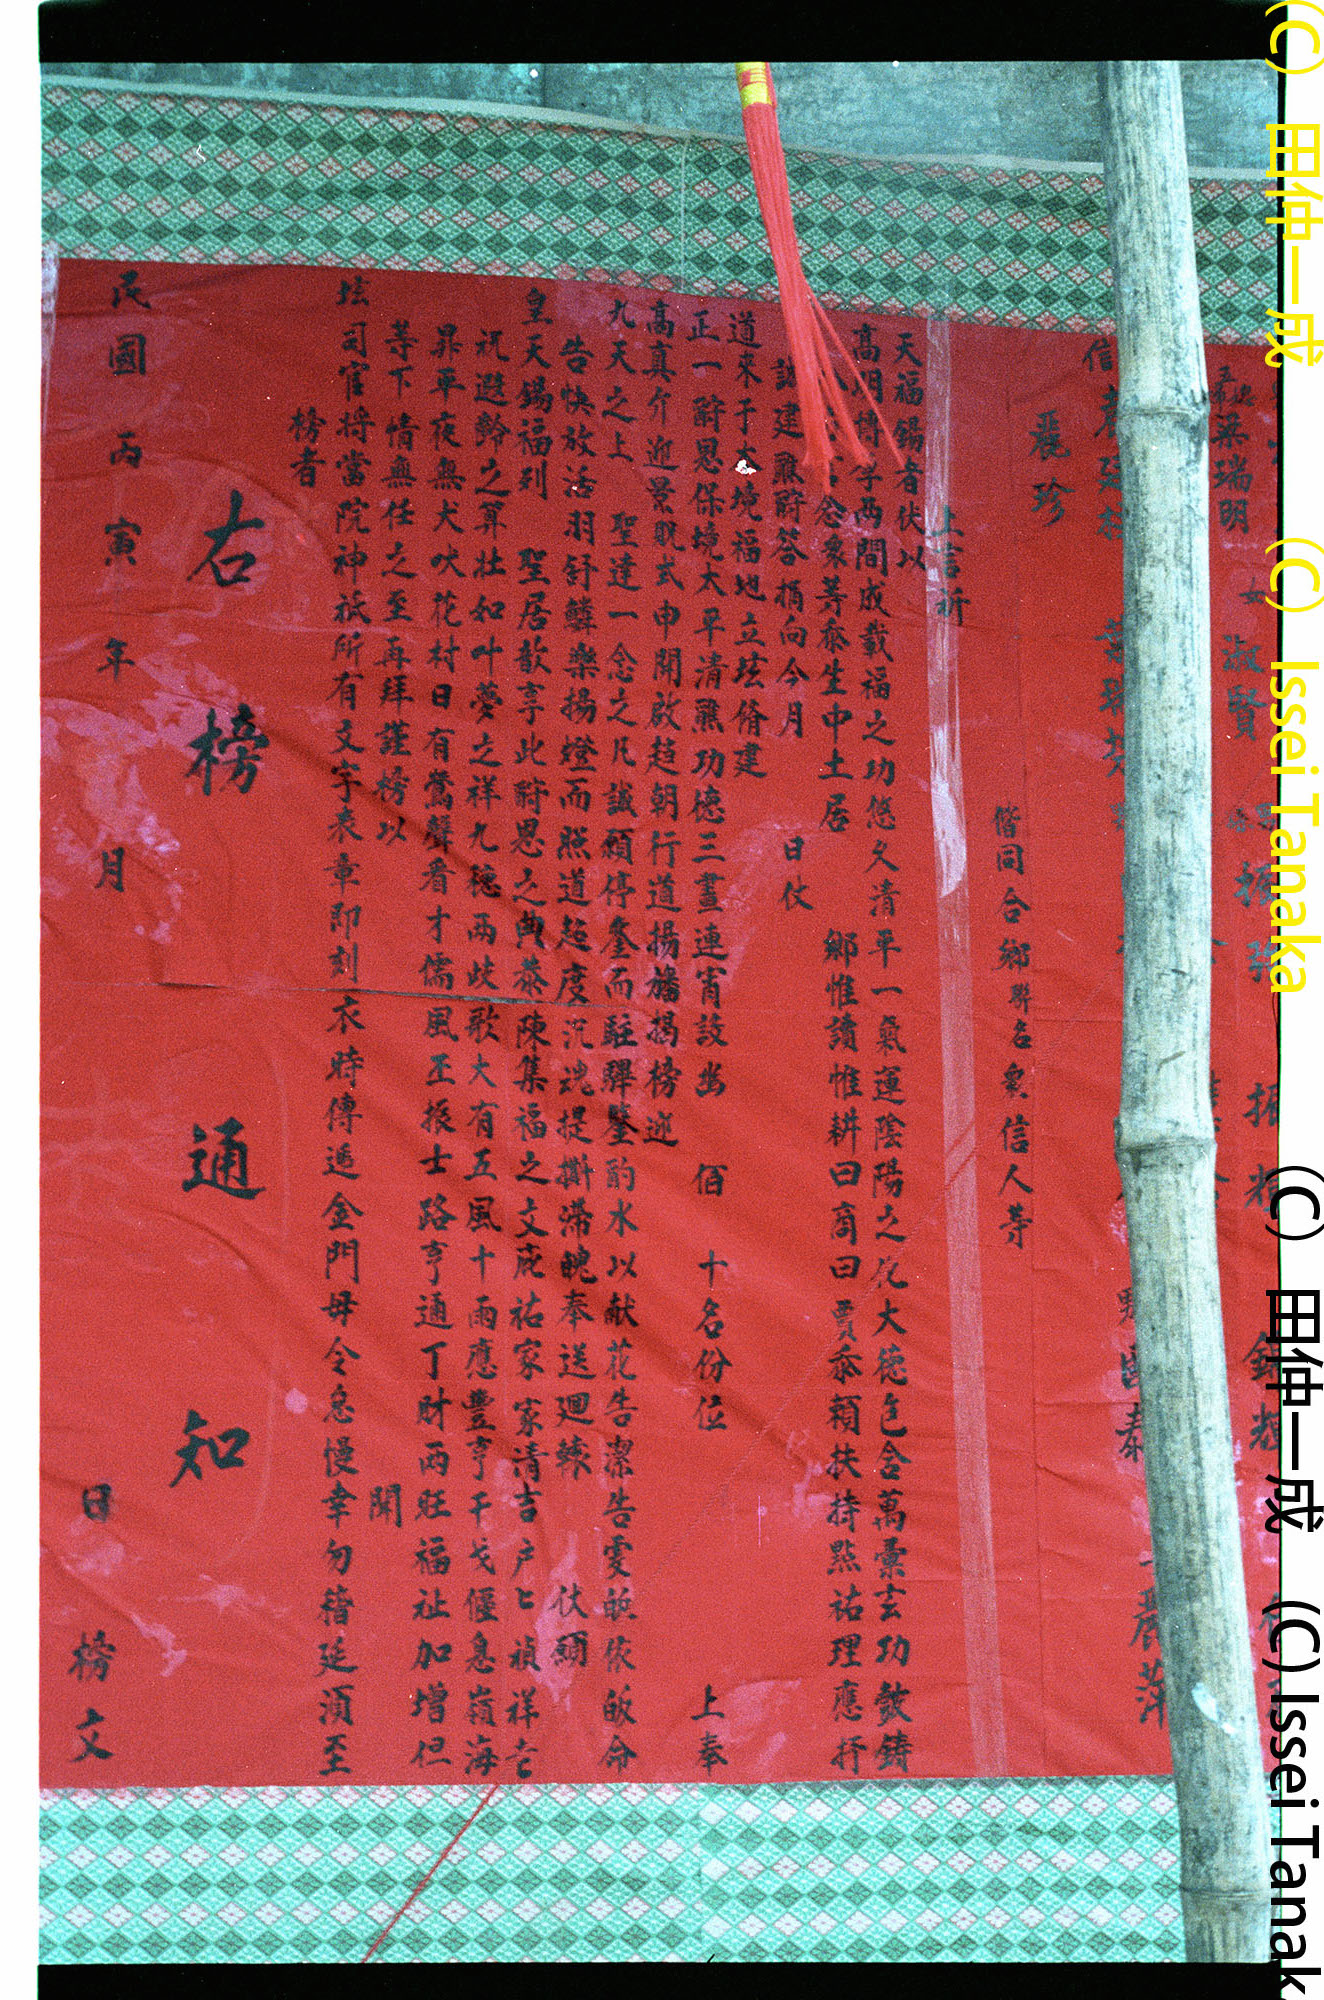 梁瑞明
女 淑賢
麗珍
偕同合鄉聯名衆信人等
上言祈
天福錫者伏以
間成載福之功悠久清平一氣運陰陽之化大德包含萬彙玄功鼓鑄
念衆等忝生中土居 鄉惟讀惟耕曰商曰賈忝賴扶持點祐理應抒
誠建醮酧答捐向今月 日仗
道來于 境福地立坛脩建
正一酧恩保境太平清醮功德三晝連宵設出 佰 十名份位 上奉
高真介迎景貺式申開啟趍朝行道揚旛揭榜迎
九天之上 聖達一念之凡誠願停鑾而駐驆鑒酌水以献花告潔告雯皈依皈命
告快放活羽舒鱗樂揚燈而照道超度沉魂提撕滯魄奉送迴 伏願
皇天錫福列 聖居歆享此酧恩之典恭陳集福之文庇祐家家清吉戶匕禎祥
祝遐齡之算壯如叶夢之祥九穗兩歧歌大有五風十雨應豐亨干戈偃息嶺海
昇平夜無犬吠花村日有鶯聲看才儒風丕振士路亨通丁財兩旺福祉加增但
等下情無任之至再拜謹榜以 聞
坛司官將當院神祇所有文字表章即刻衣時傳遞金門毋令怠慢幸勿稽延湏至
榜者
右榜通知
民國丙寅年 月 日 榜文
(C) 田仲一成 (C) Issei Tanaka
(C) 田仲一成 (C) Issei Tanak